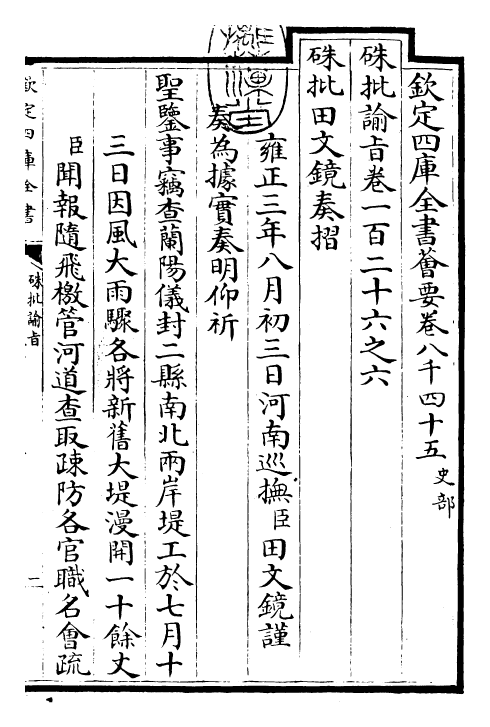 欽定四庫全書薈要卷八千四十五 史部
硃批諭旨卷一百二十六之六
硃批田文鏡奏摺
雍正三年八月初三日河南巡撫臣田文鏡謹
奏為據實奏明仰祈
聖鑒事竊查蘭陽儀封二縣南北兩岸堤工於七月十
三日因風大雨驟各將新舊大堤漫開一十餘丈
臣聞報隨飛檄管河道查取疎防各官職名會疏
欽定四庫全書
硃批諭旨